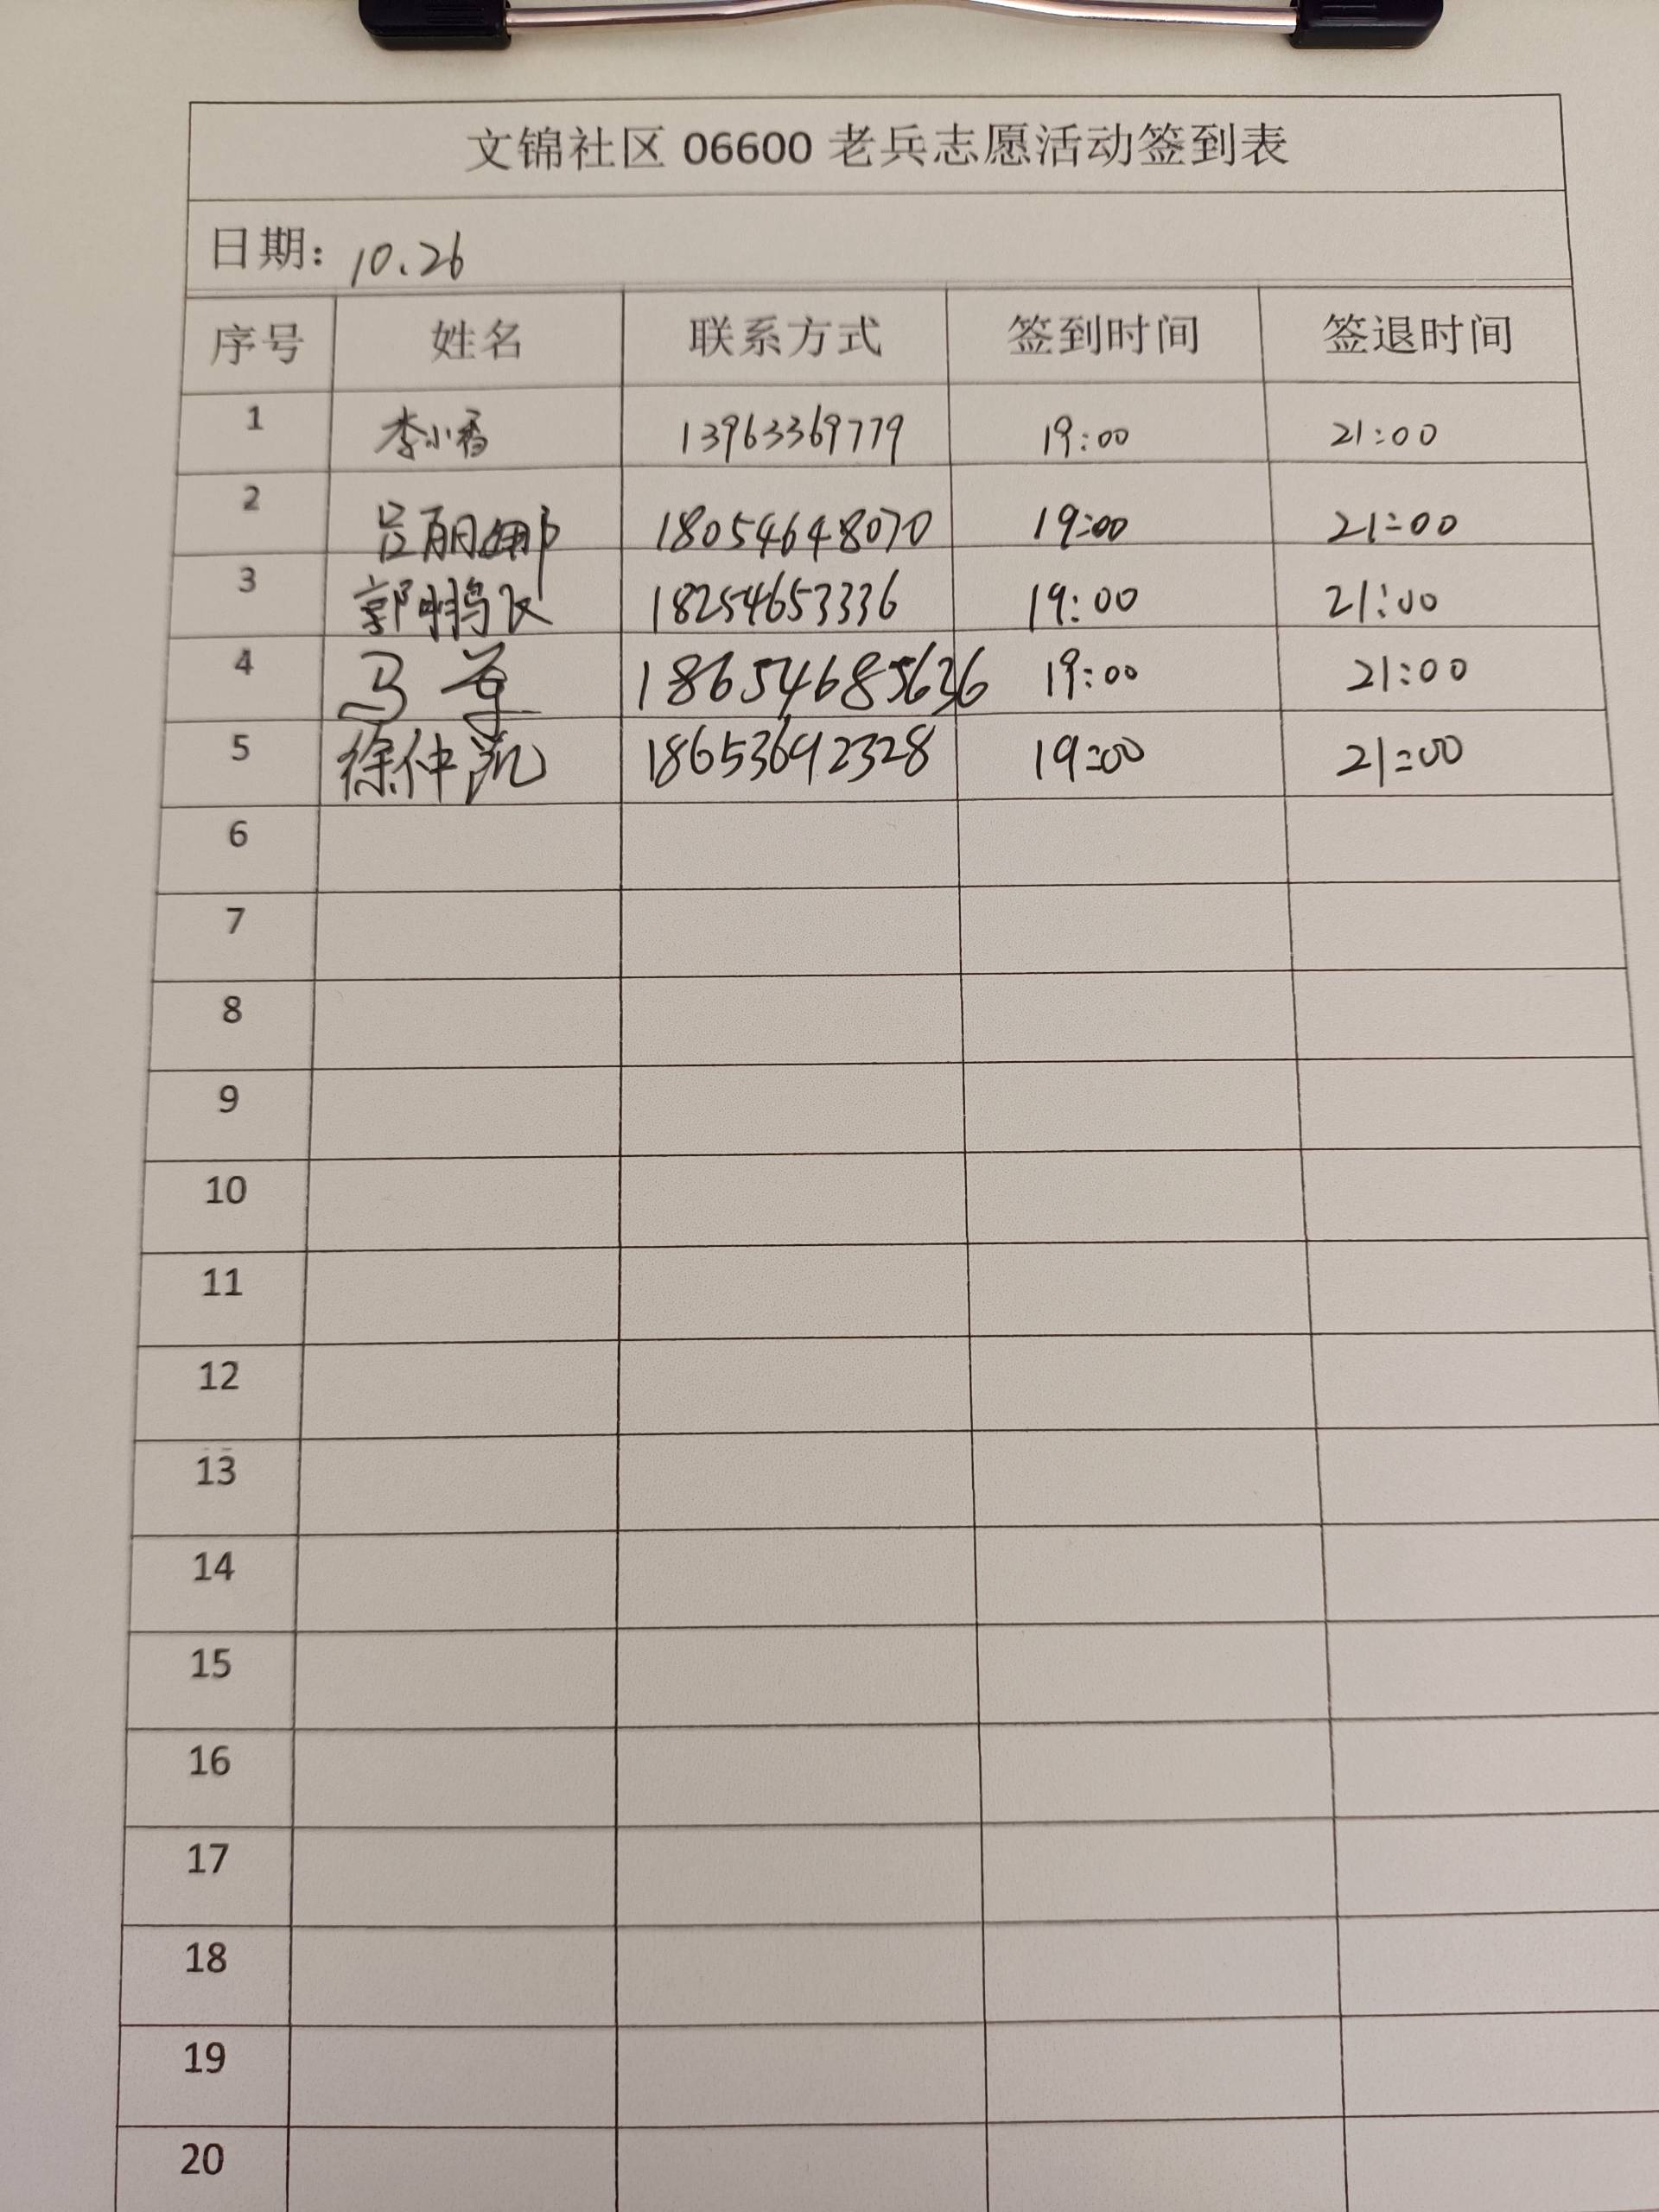 文锦社区 06600 老兵志愿活动签到表
日期: 10.26
序号 姓名 联系方式 签到时间 签退时间
1 李小香 13963369779 19:00 21:00
2 吕丽娜 18054648070 19:00 21:00
3 郭鹏飞 18254653336 19:00 21:00
4 马 18654685636 19:00 21:00
5 徐仲凯 18653692328 19:00 21:00
6
7
8
9
10
11
12
13
14
15
16
17
18
19
20